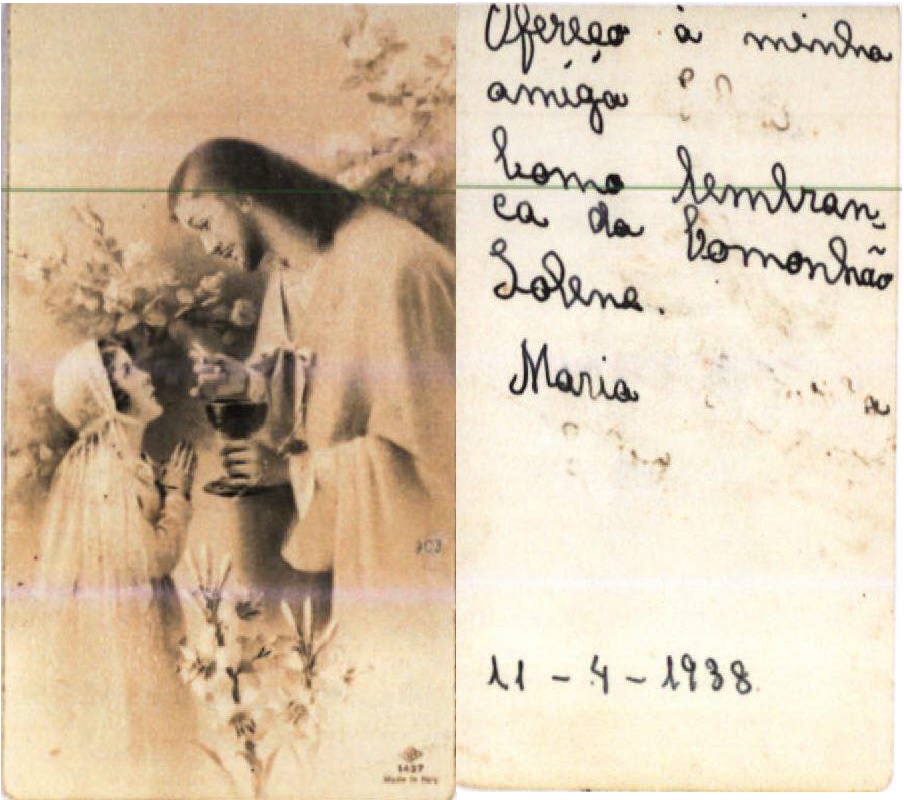 1437
Made in Italy
Ofereço à minha
amiga
Como lembran
ca da Comonhão
Solene.
Maria
11-4-1938